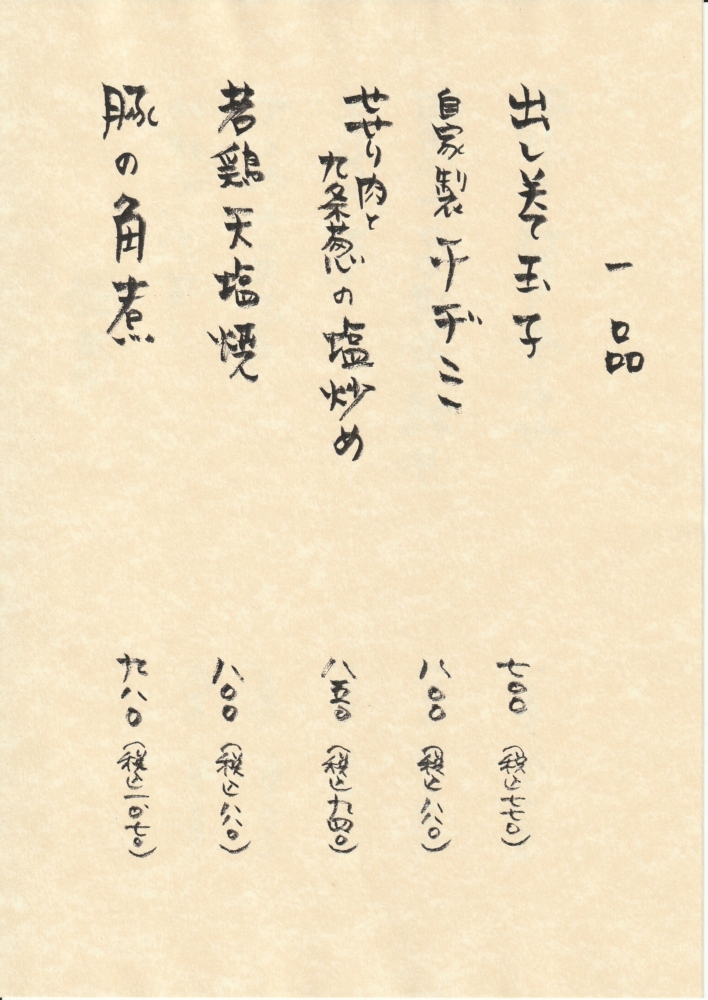 一品
出し巻て玉子
七〇〇（税込七七〇）
自家製チヂミ
八〇〇（税込八八〇）
せせり肉と
九条葱の塩炒め
八五〇（税込九四〇）
若鶏天塩焼
八〇〇（税込八八〇）
豚の角煮
九八〇（税込一〇七〇）